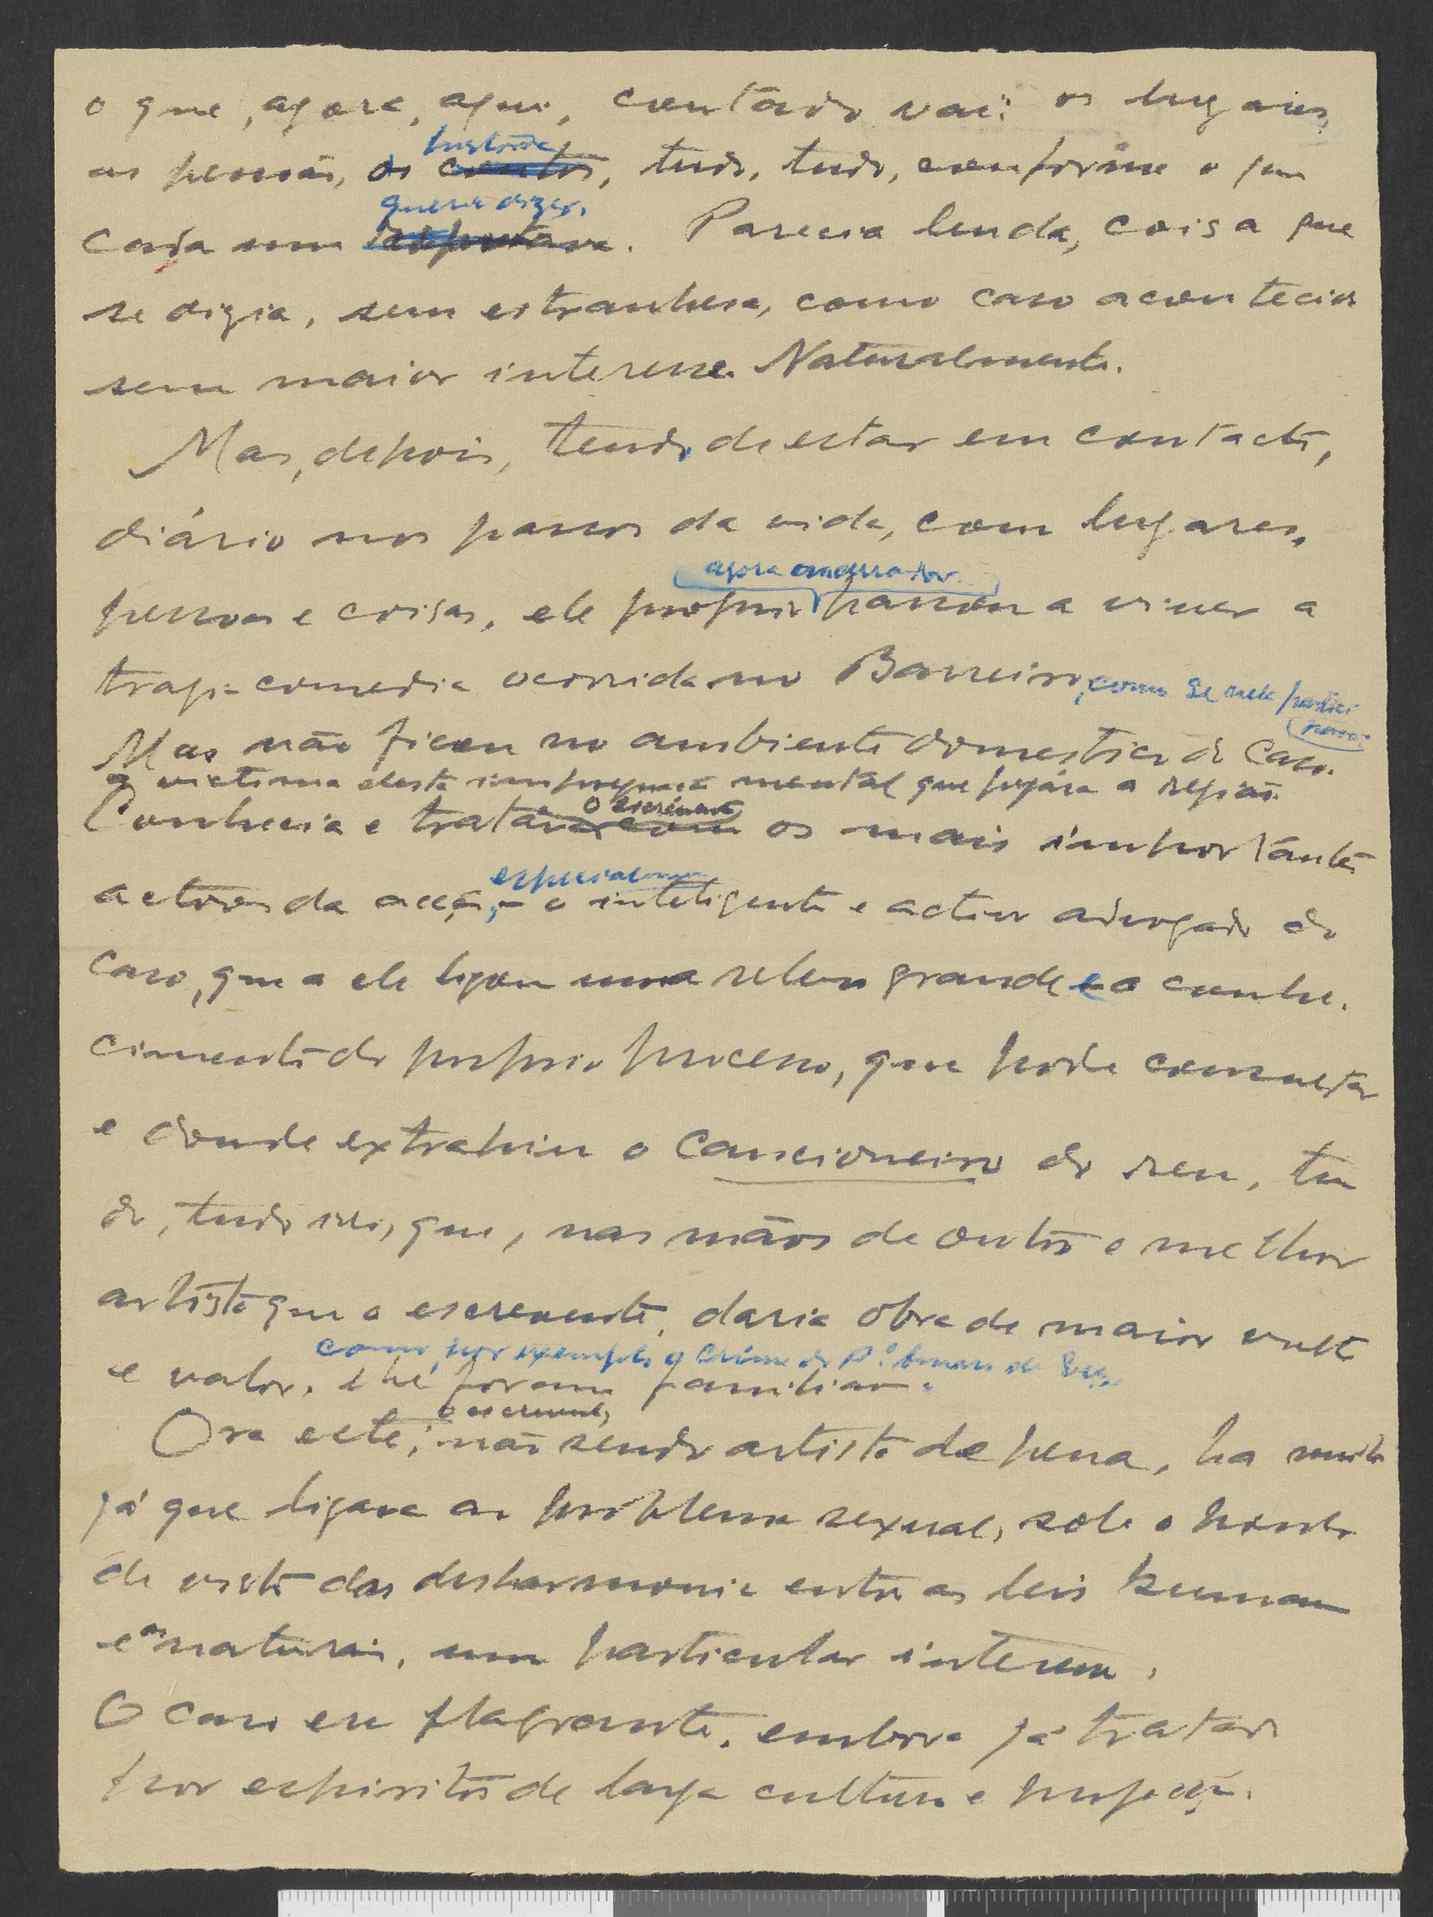 o que, agora, aqui, contado vai: os lugares,
as pessoas, os
historia
contos, tudo, tudo, conforme o que
queria dizer.
cada um reportava. Parecia lenda, coisa que
se dizia, sem estranhesa, como caso acontecido
sem maior interesse. Naturalmente.
Mas, depois, tendo de estar em contacto,
diário nos passos da vida, com lugares,
agora
pessoas e coisas, ele proprio passou a viver a
tragi-comedia ocorrida no Barreiro, como se nela partici
para
Mas não ficou no ambiente domestico do caso.
a victima desta mental que a região.
o escrevente
Conhecia e tratava com os mais importantes
especialmente
actores da acção, - o inteligente e activo advogado do
caso, que a ele ligou uma relevo grande e o conhe-
cimento do proprio processo, que pode consultar
e donde extrahiu o Cancioneiro do reu, tu
do, tudo isso, que, nas mãos de outro e melhor
artista que o escrevente, daria obra de maior vulto
como, por exemplo, o Crime do P.e Amaro de Eça.
e valor, lhe foram familiares.
o escrevente,
Ora este, não sendo artista de pena, ha muito
já que ligava ao problema sexual, sob o ponto
de vista das desharmonia entre as leis humanas
e as naturais, um particular interesse.
O caso era flagrante, embora já tratado
por espiritos de larga cultura e projeção.